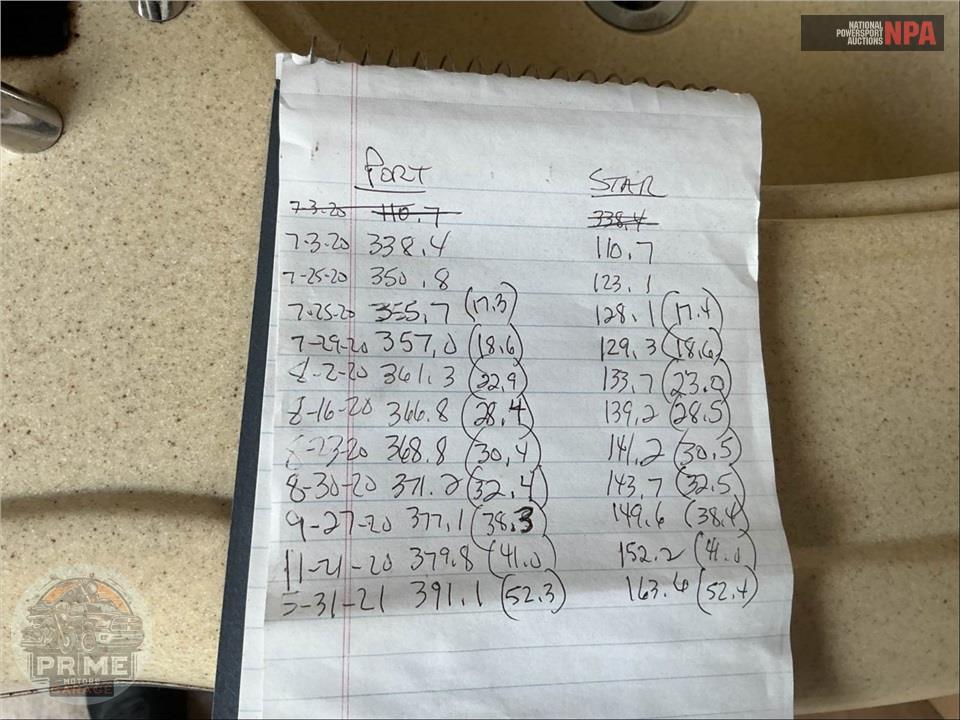 NATIONAL
POWERSPORT
AUCTIONS NPA
PORT STAR
7-3-20 110.7 338.4
7-3-20 338.4 110.7
7-25-20 350.8 123.1
7-25-20 355.7 (17.3) 128.1 (17.4)
7-29-20 357.0 (18.6) 129.3 (18.6)
8-2-20 361.3 (22.9) 133.7 (23.0)
8-16-20 366.8 (28.4) 139.2 (28.5)
8-23-20 368.8 (30.4) 141.2 (30.5)
8-30-20 371.2 (32.4) 143.7 (32.5)
9-27-20 377.1 (38.3) 149.6 (38.4)
11-21-20 379.8 (41.0) 152.2 (41.0)
5-31-21 391.1 (52.3) 163.6 (52.4)
PRIME
MOTORS
GARAGE